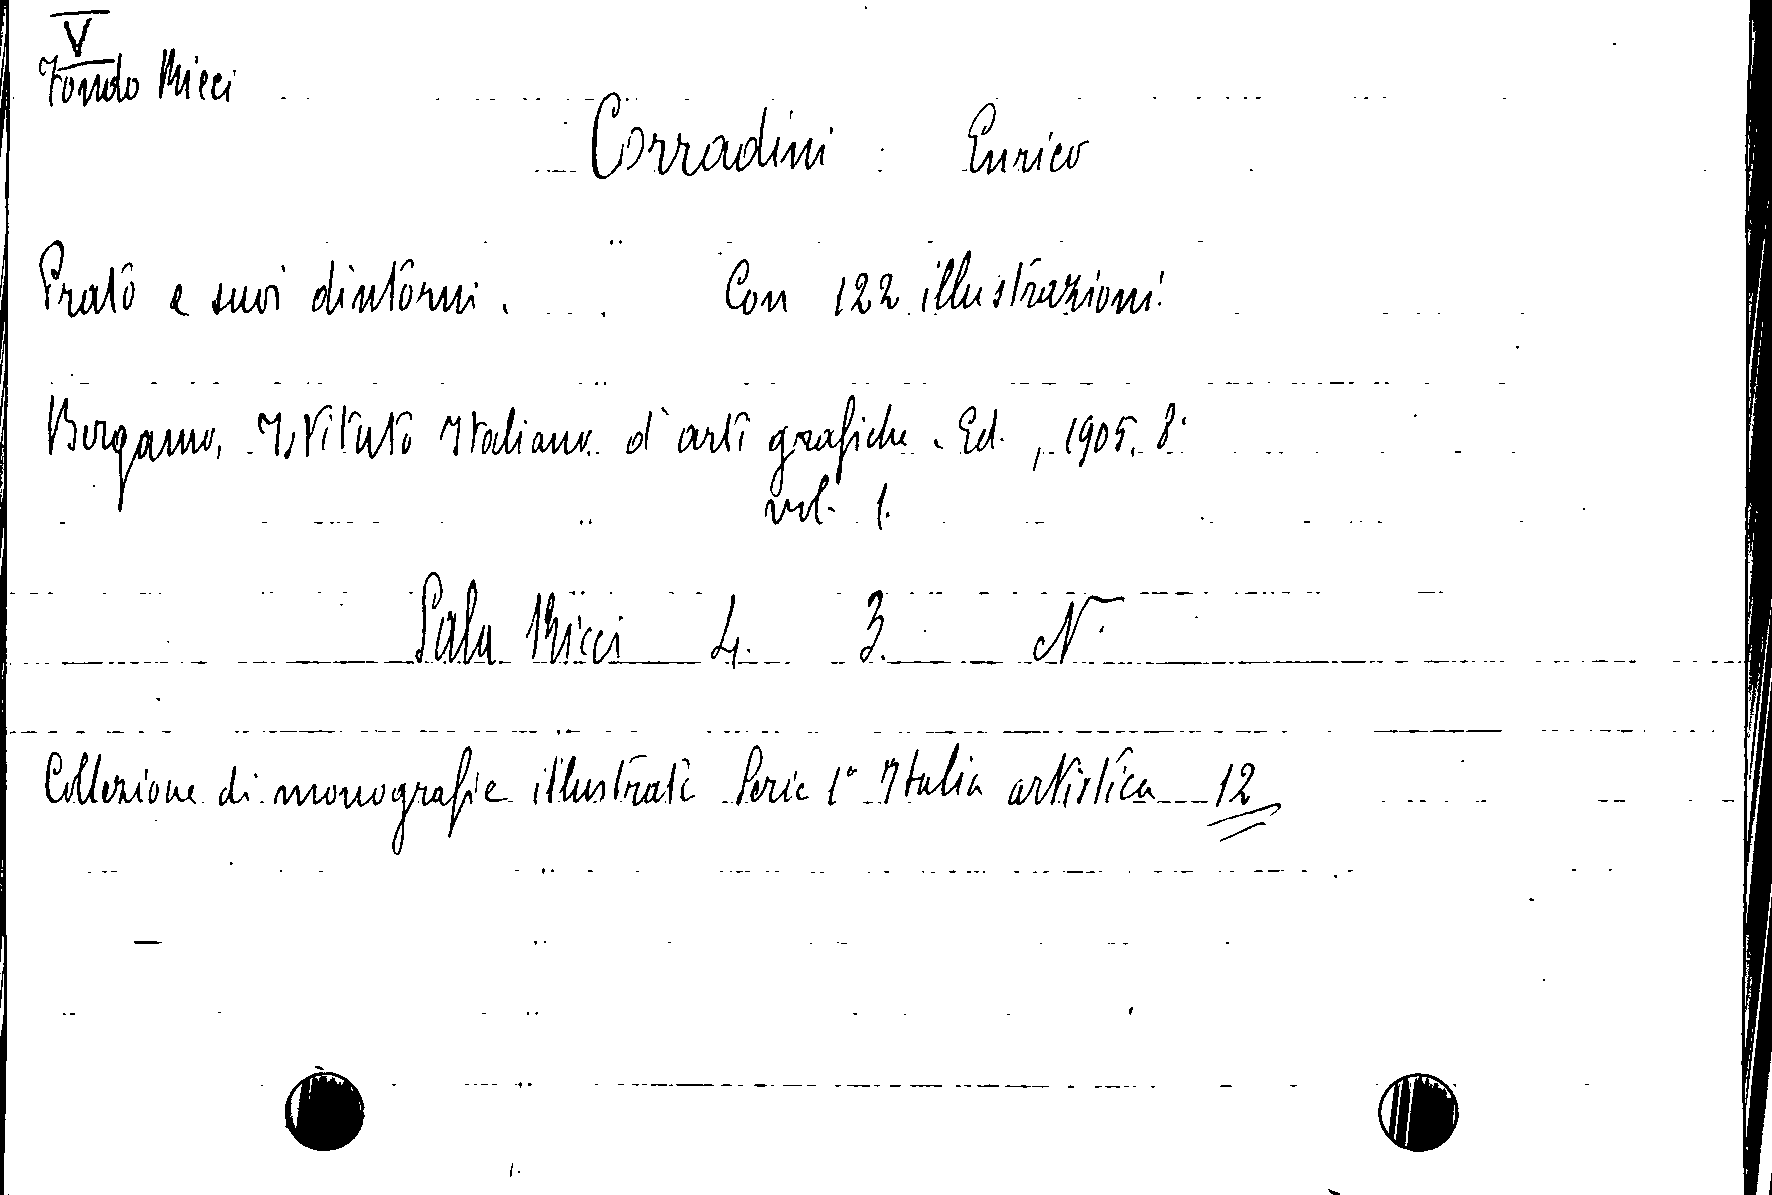 V
Fondo Ricci
Corradini Enrico
Prato e suoi dintorni. Con 122 illustrazioni.
Bergamo, Istituto Italiano d'arti grafiche. Ed., 1905. 8°
vol. 1.
Sala Ricci 4. 3. N.
Collezione di monografie illustrate Serie 1ª Italia artistica 12